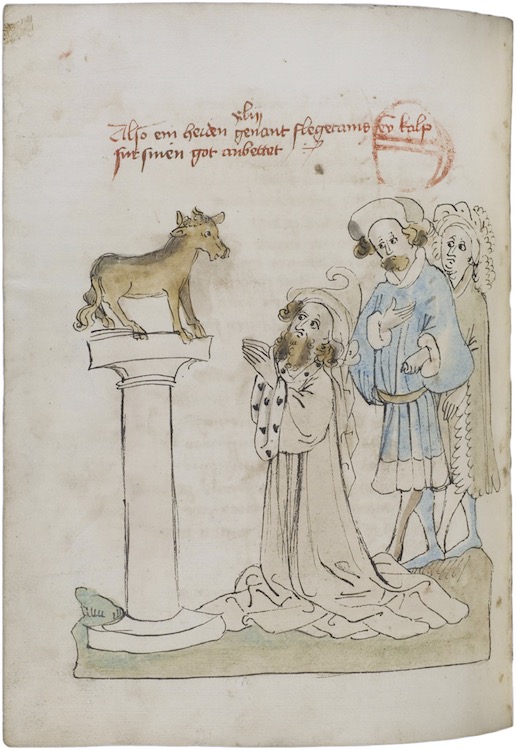 xliii
Also ein heiden genant flegetanis ey kalp
für sinen got anbettet